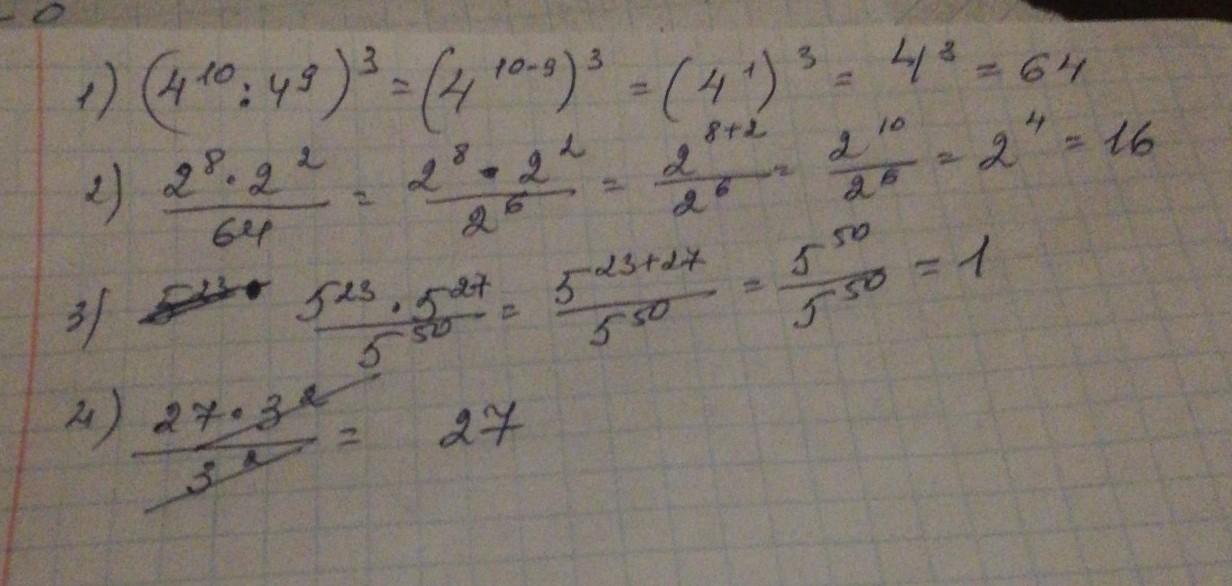 - 0
1) (4^10 : 4^9)^3 = (4^10-9)^3 = (4^1)^3 = 4^3 = 64
2) 2^8 · 2^2 / 64 = 2^8 · 2^2 / 2^6 = 2^8+2 / 2^6 = 2^10 / 2^6 = 2^4 = 16
3) 5^23 · 5^23 · 5^27 / 5^50 = 5^23+27 / 5^50 = 5^50 / 5^50 = 1
4) 27 · 3^2 / 3^2 = 27